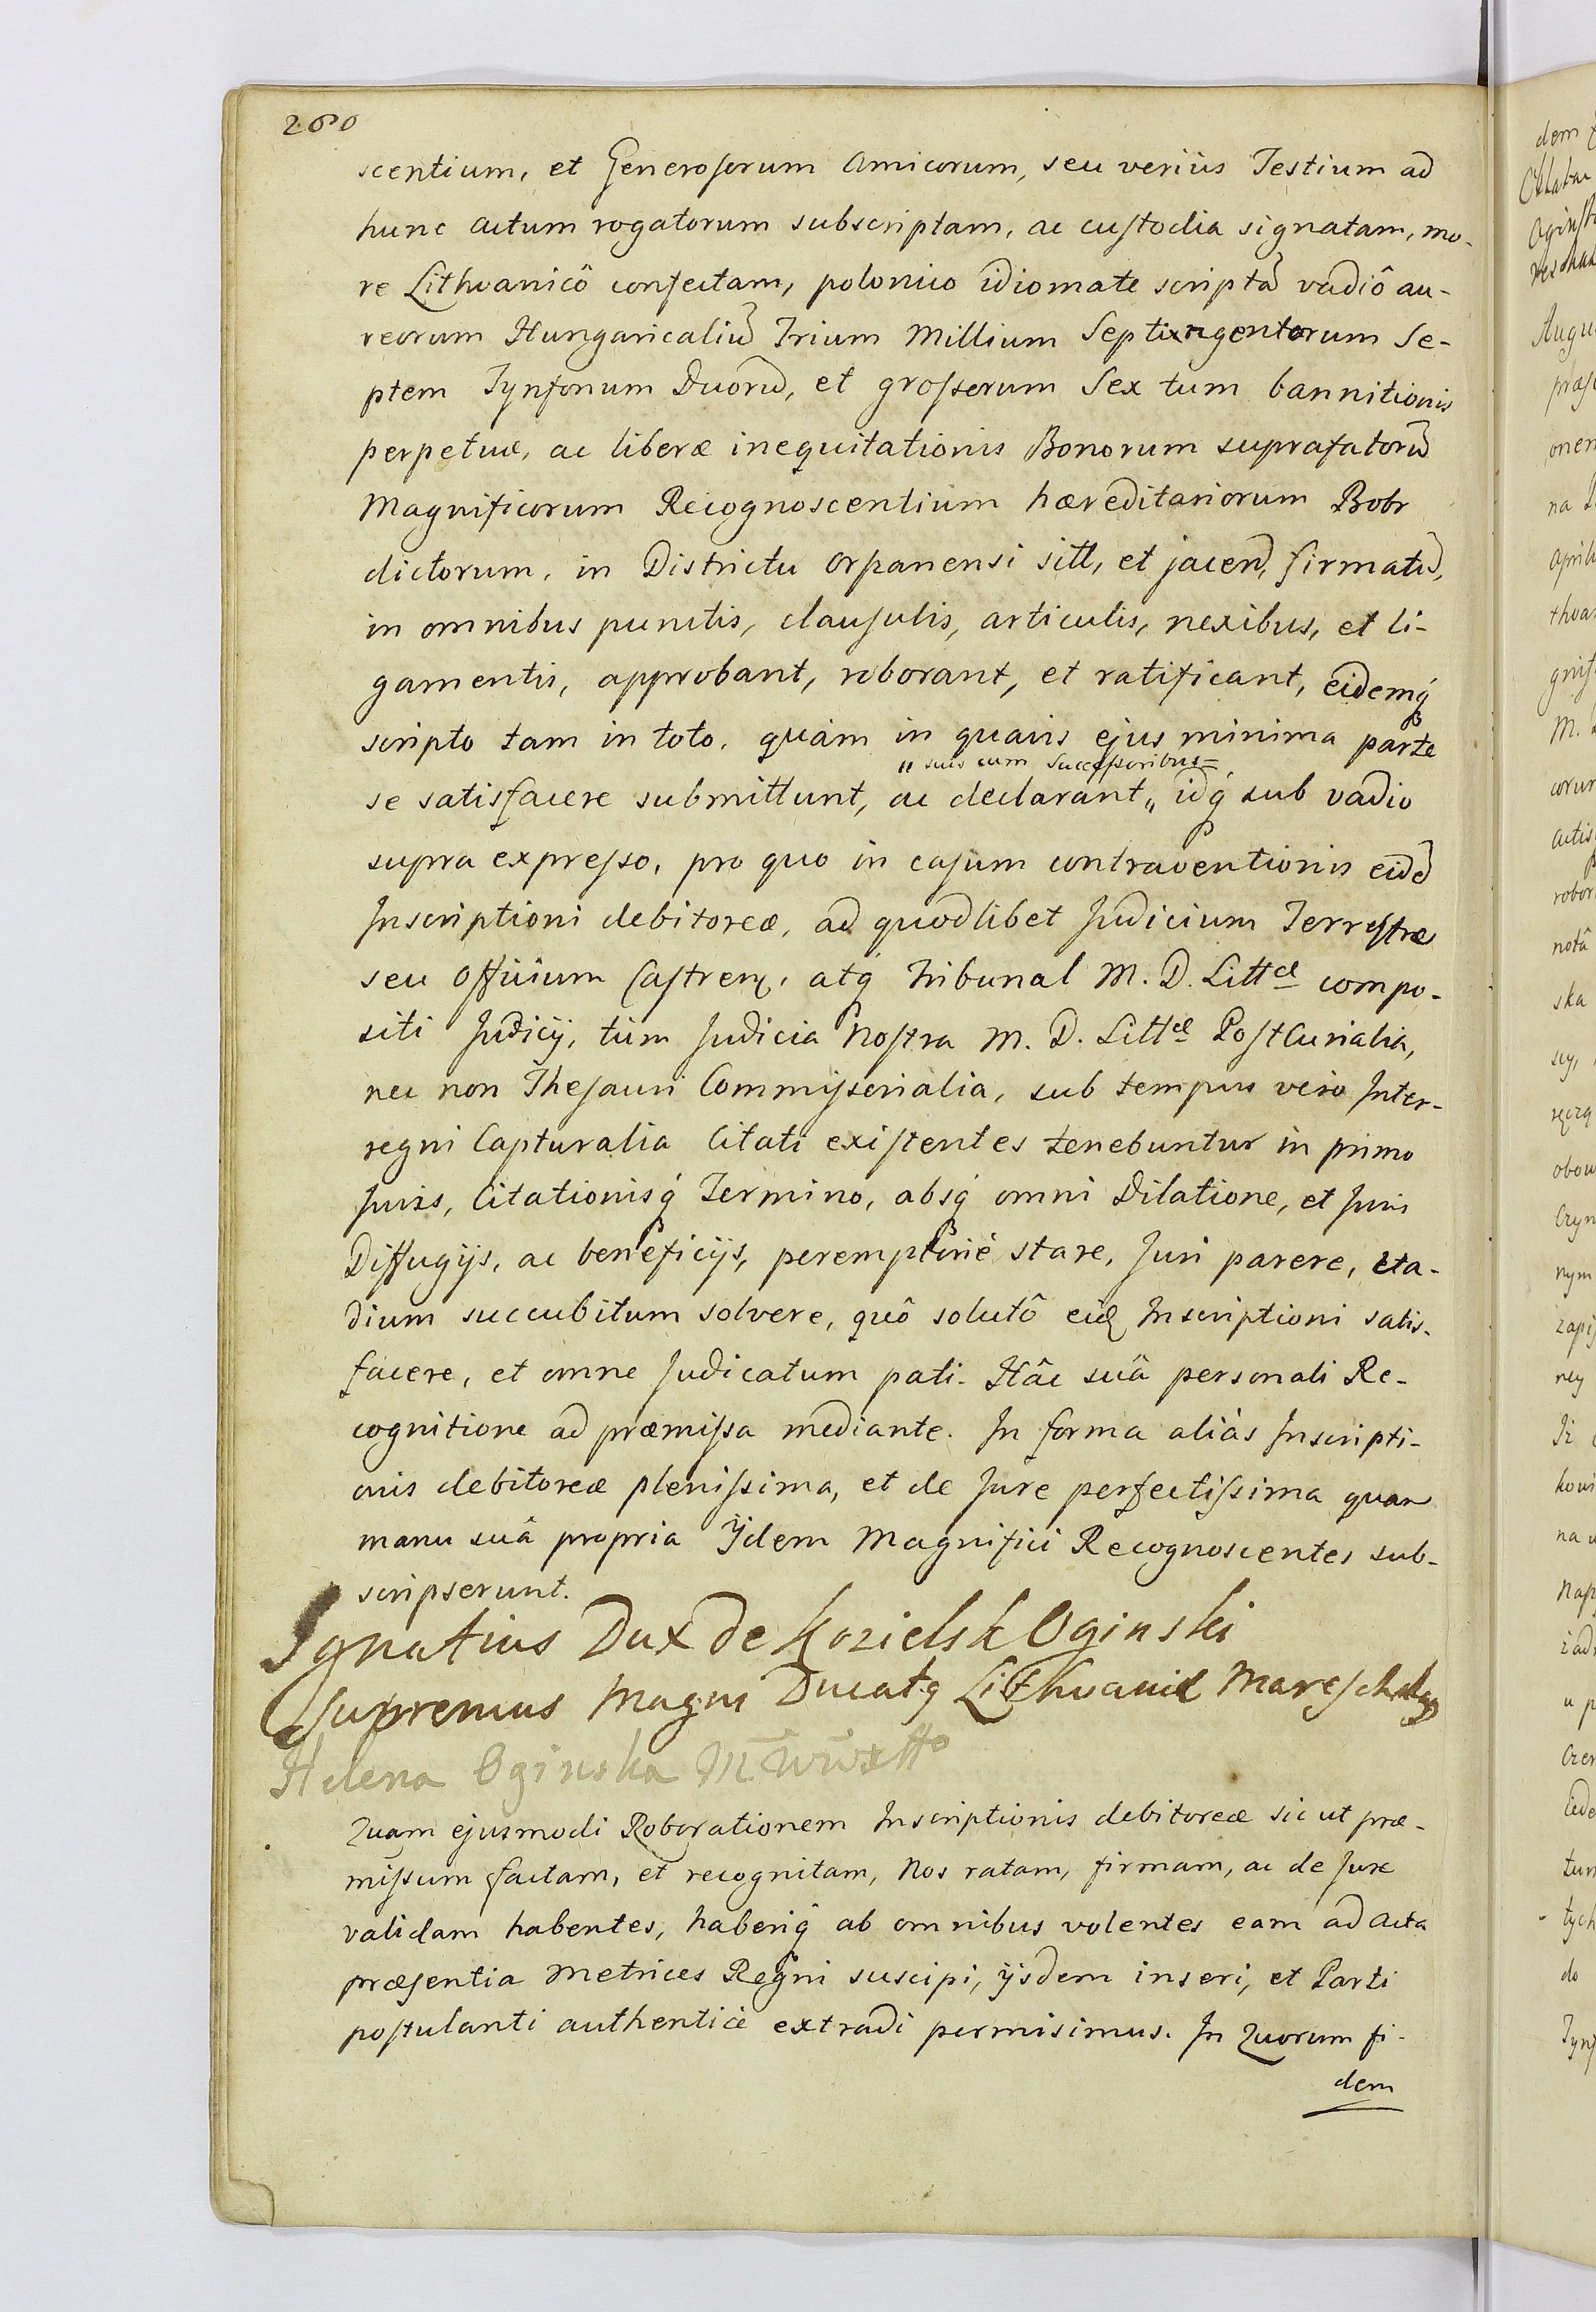 260
scentium, et Generosorum Amicorum, seu veriùs Testium ad
hunc actum rogatorum subscriptam, ac custodia signatam, mo-
re Lithvanicô confectam, polonico idiomate scriptã vadiô au-
reorum Hungaricaliũ Trium Millium Septingentorum Se-
ptem Tynfonum Duorũ, et grosserum Sex tum bannitionis
perpetuæ, ac liberæ inequitationis Bonorum suprafatorũ
Magnificorum Recognoscentium hæreditariorum Bobr
dictorum, in Districtu Orszanensi sitt, et jacen, firmatã,
in omnibus punctis, clausulis, articulis, nexibus, et li-
gamentis, approbant, roborant, et ratificant, eidemq́
scripto tam in toto, quàm in quavis ejus minima parte
„ suis cum Successoribus =
se satisfacere submittunt, ac declarant „ idq́ sub vadio
supra expresso, pro quo in casum contraventionis eidẽ
Inscriptioni debitoreæ, ad quodlibet Judicium Terrestræ
seu Officium Castren, atq́ Tribunal M. D. Littæ compo-
siti Judicij, tùm Judicia Nostra M. D. Littæ PostCurialia,
nec non Thesauri Commisserialia, sub tempus vero Inter-
regni Capturalia Citati existentes tenebuntur in primo
Juris, Citationisq́ Termino, absq́ omni Dilatione, et Juris
Diffugijs, ac beneficijs, peremptoriè stare, Juri parere, Va-
dium succubitum solvere, quô solutô eid Inscriptioni satis-
facere, et omne Judicatum pati. Hâc suâ personali Re-
cognitione ad præmissa mediante. In forma aliàs Inscripti-
onis debitoreæ plenissima, et de Jure perfectissima quam
manu suâ propria Ijdem Magnifici Recognoscentes sub-
scripserunt.
Ignatius Dux de Kozielsk Oginski
Supremus Magni Ducatq Lithvaniæ Mareschalq
Helena Oginska
Quam ejusmodi Roborationem Inscriptionis debitoreæ sic ut præ-
missum factam, et recognitam, Nos ratam, firmam, ac de Jure
validam habentes, haberiq́ ab omnibus volentes eam ad Acta
præsentia Metrices Regni suscipi, ijsdem inseri, et Parti
postulanti authenticè extradi permisimus. In Quorum fi-
dem